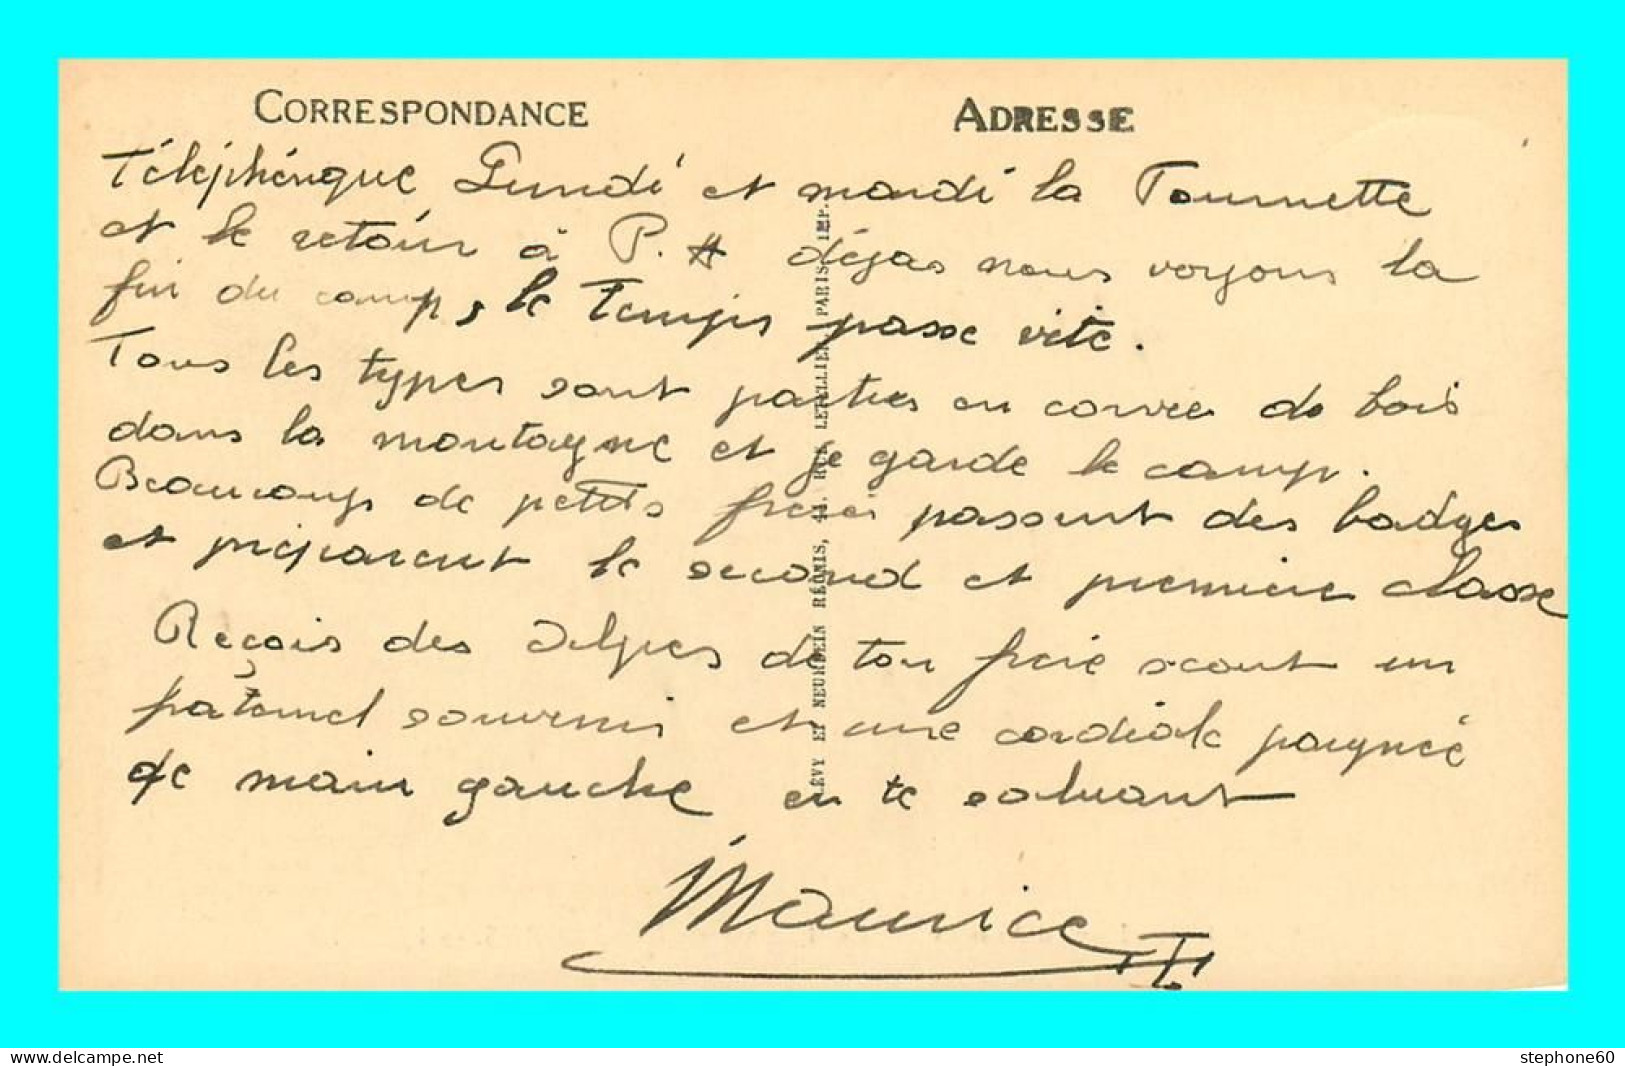 CORRESPONDANCE
ADRESSE
Téléphérique Lundi et mardi la Tournette
et le retour à P. A déjas nous voyons la
fin du camp, le temps passe vite.
Tous les types sont parties en corvee de bois
dans la montagne et je garde le camp.
Beaucoup de petits freres passent des badges
et préparent le second et premiere classe
Reçois des Alpes de ton frère scout un
paternel souvenir et une cordiale poignée
de main gauche en te saluant
Maurice
LÉVY ET NEURDEIN RÉUNIS, 44, RUE LETELLIER, PARIS, IMP.
stephone60
www.delcampe.net